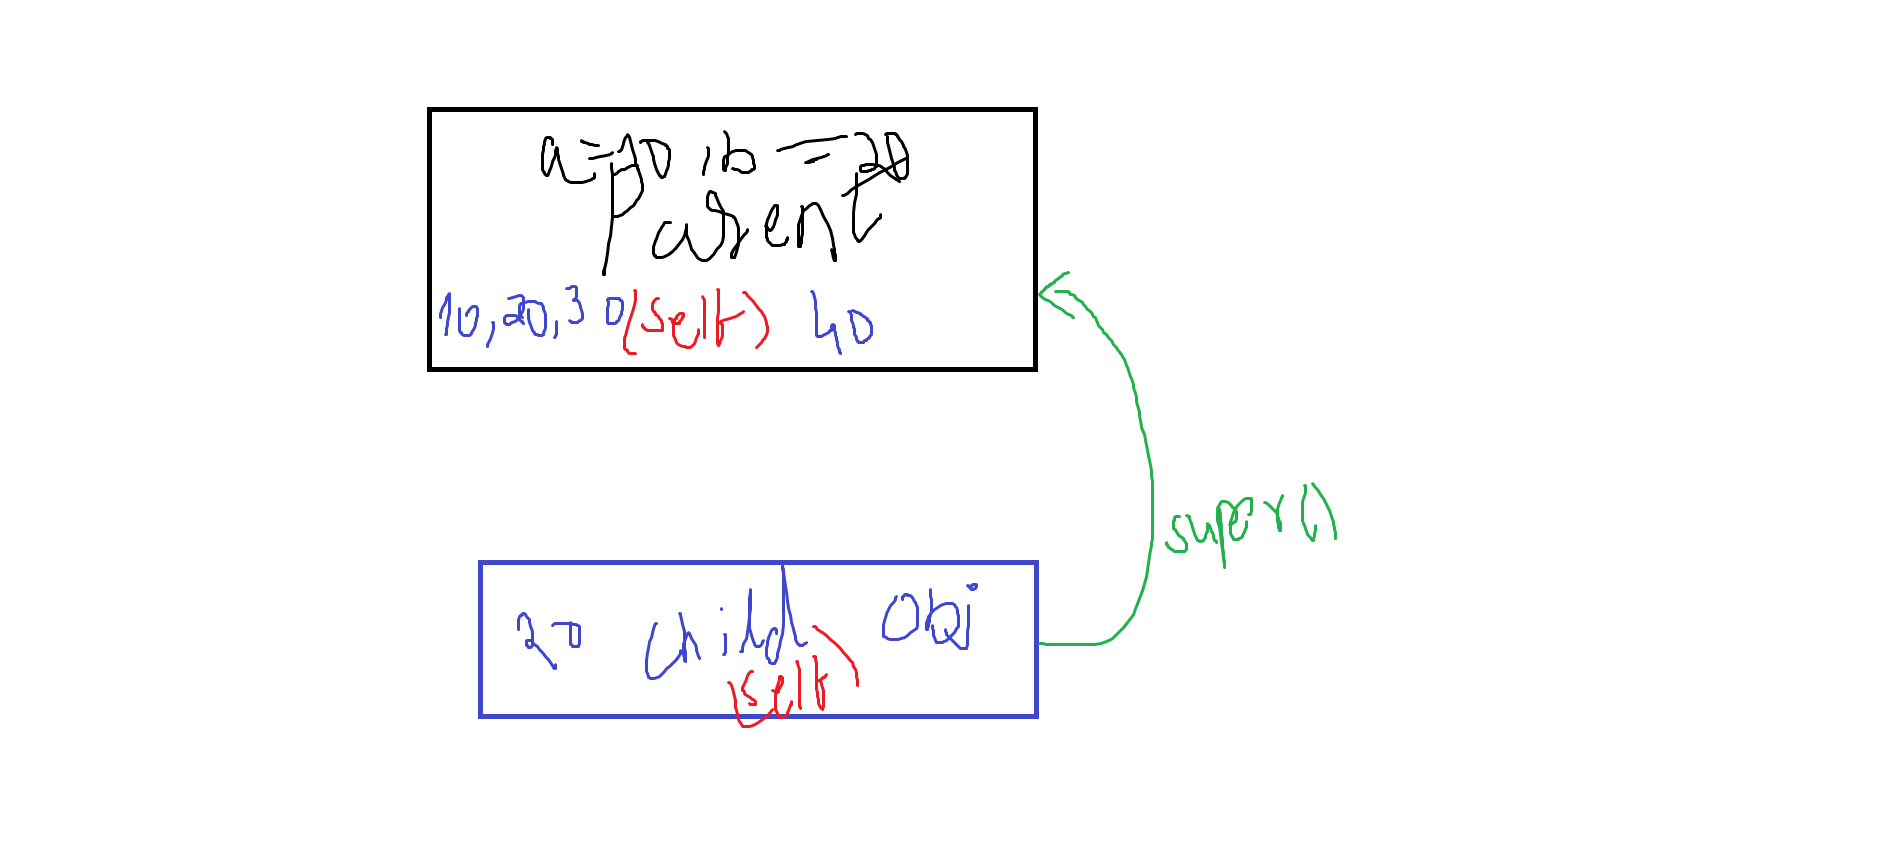 a=10 , b = 20
Parent
10,20,30 (self) 40
super()
20 child obj
(self)